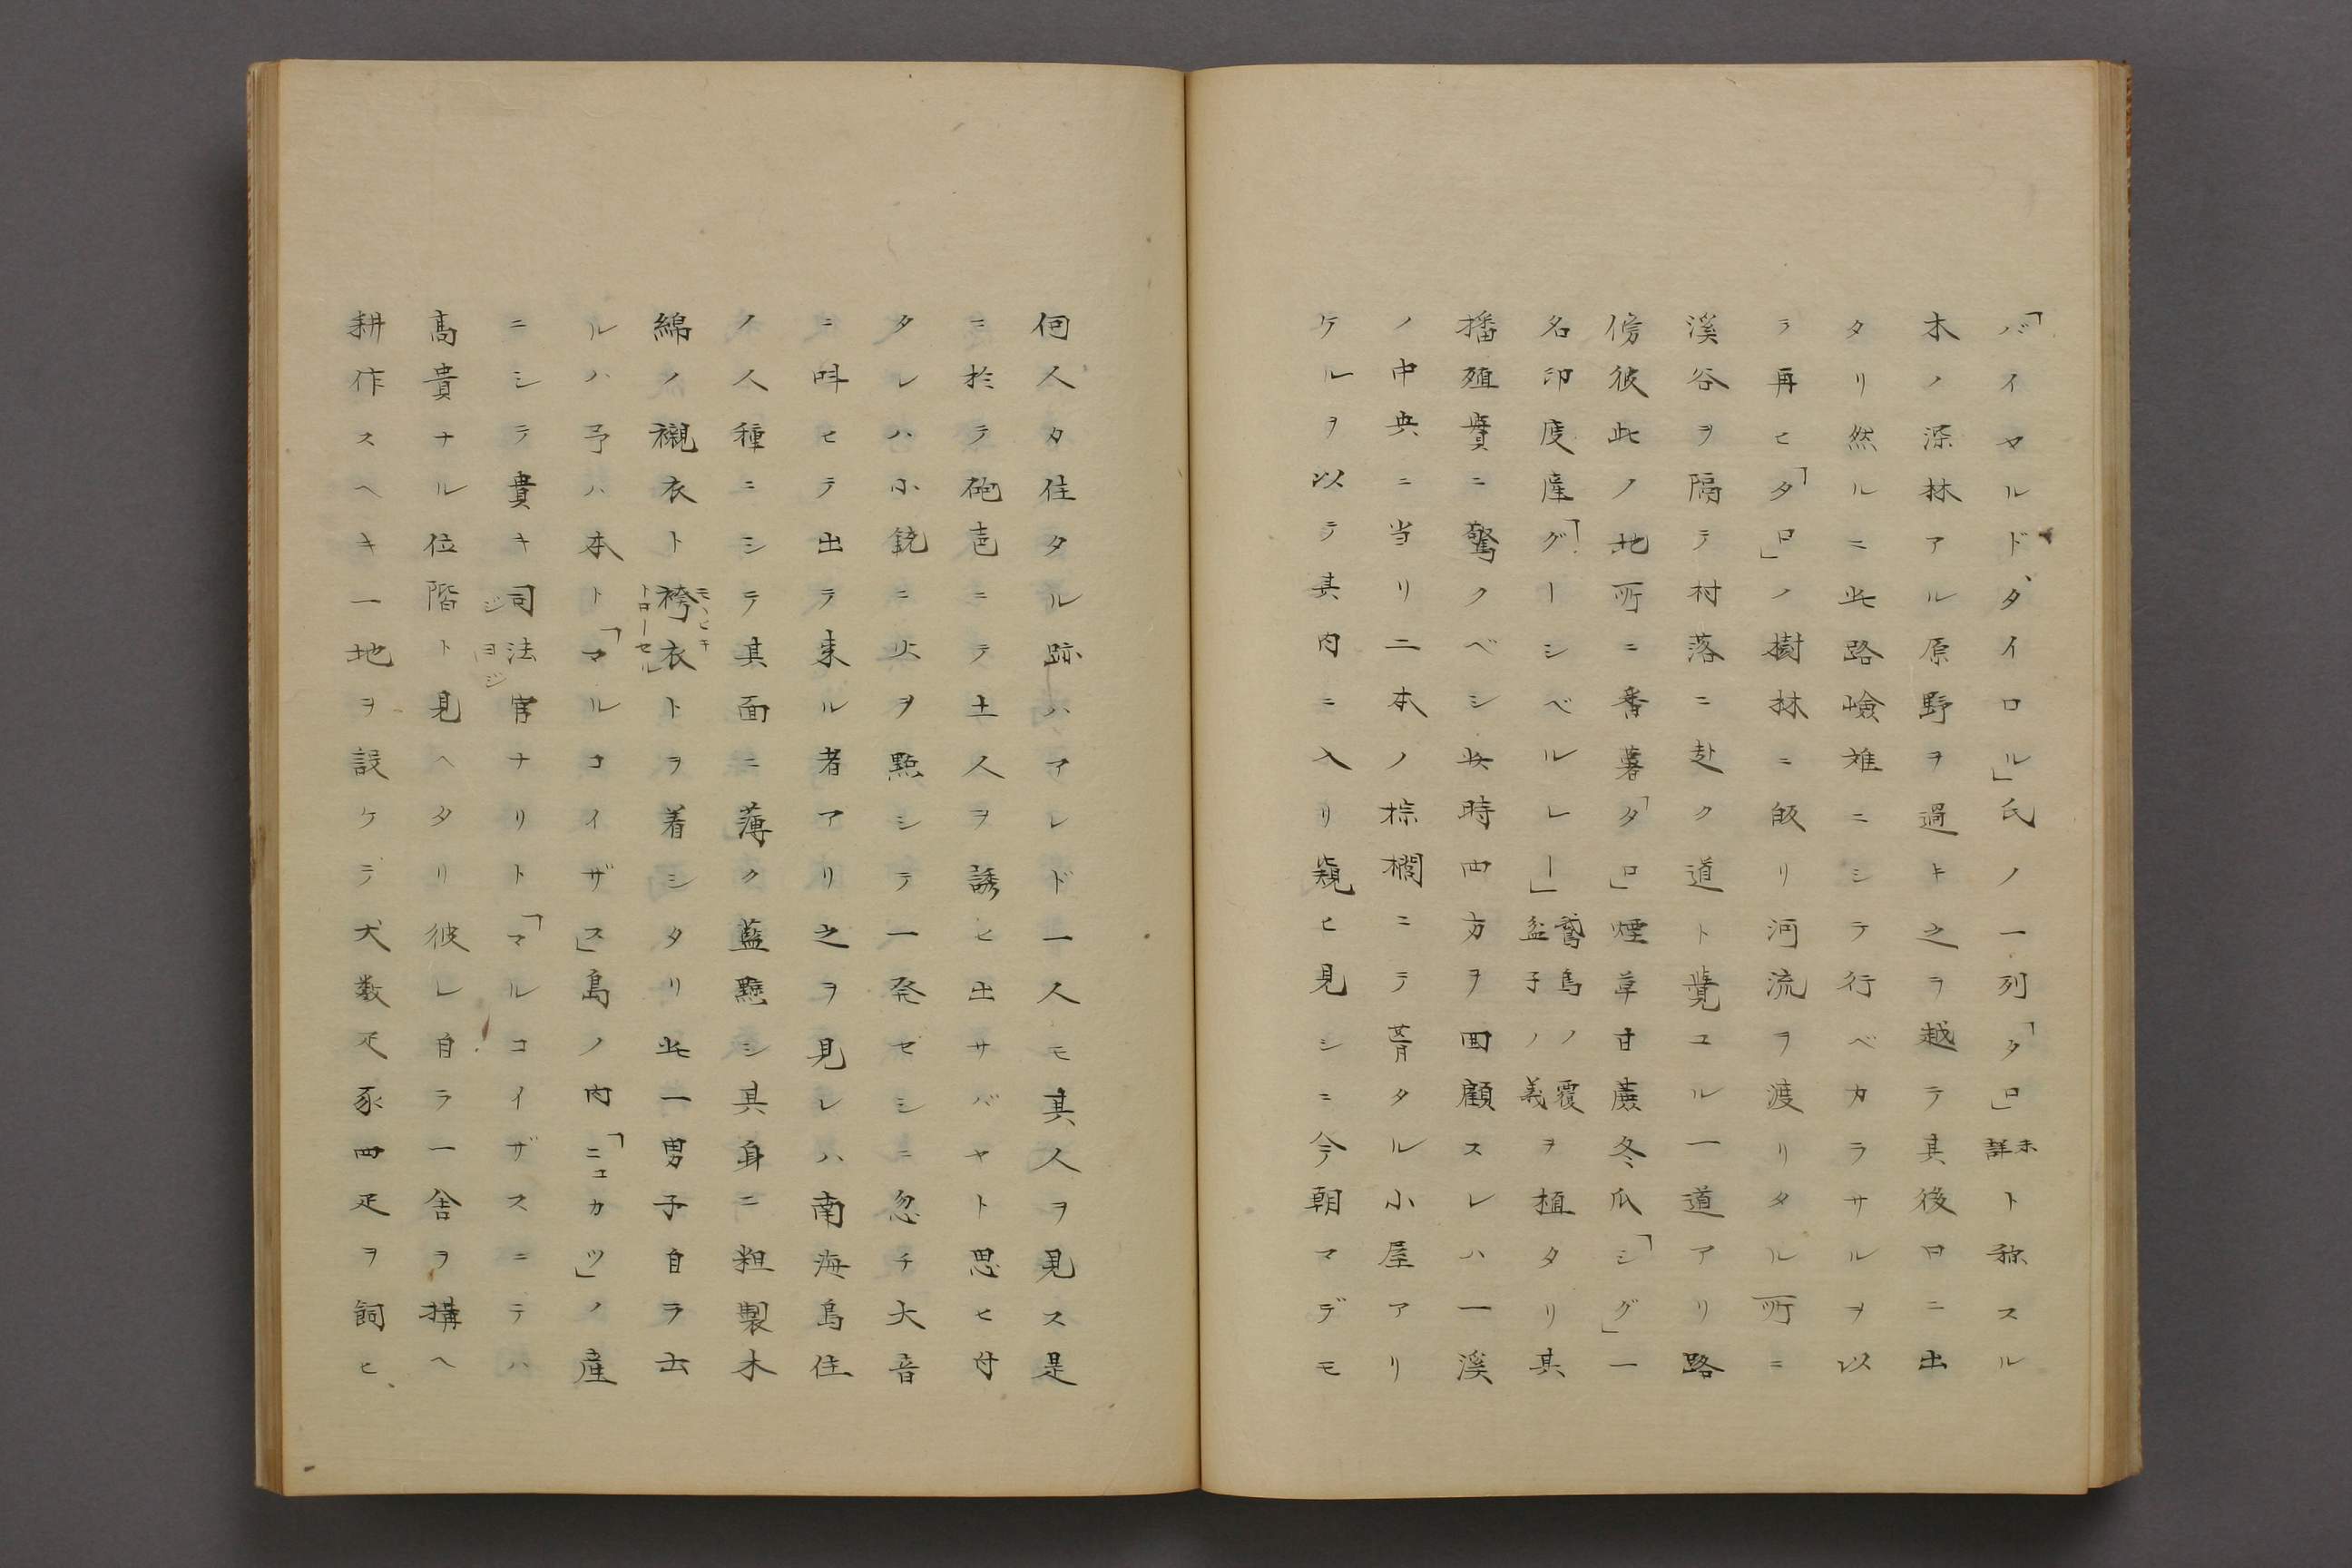 「バイヤルドダイロル」氏ノ一列「タロ」未詳ト称スル
木ノ深林アル原野ヲ過キ之ヲ越テ其後口ニ出
タリ然ルニ此路嶮難ニシテ行ベカラサルヲ以
テ再ヒ「タロ」ノ樹林ニ皈リ河流ヲ渡リタル所ニ
溪谷ヲ隔テ村落ニ赴ク道ト覺ユル一道アリ路
傍彼此ノ地所ニ番薯「タロ」煙草甘蔗冬瓜「シグ」一
名印度産「グーシベルレー」鵞鳥ノ覆盆子ノ義ヲ植タリ其
播殖實ニ驚クベシ此時四方ヲ回顧スレハ一溪
ノ中央ニ当リ二本ノ棕櫚ニテ葺タル小屋アリ
ケルヲ以テ其内ニ入リ窺ヒ見シニ今朝マデモ
何人タ住タル跡ハアレド一人モ其人ヲ見ス是
ニ於テ砲声ニテ土人ヲ誘ヒ出サバヤト思ヒ付
タレハ小銃ニ火ヲ點シテ一発セシニ忽チ大音
ニ呌ヒテ出テ来ル者アリ之ヲ見レハ南海島住
ノ人種ニシテ其面ニ薄ク藍點シ其身ニ粗製木
綿ノ襯衣ト袴衣モヽヒキトローセルトヲ着シタリ此一男子自ラ云
ルハ予ハ本ト「マルコイザス」島ノ内「ニュカツ」ノ産
ニシテ貴キ司法官ジヨジナリト「マルコイザスニテハ
高貴ナル位階ト見ヘタリ彼レ自ラ一舎ヲ構ヘ
耕作スヘキ一地ヲ設ケテ犬数疋豕四疋ヲ飼ヒ